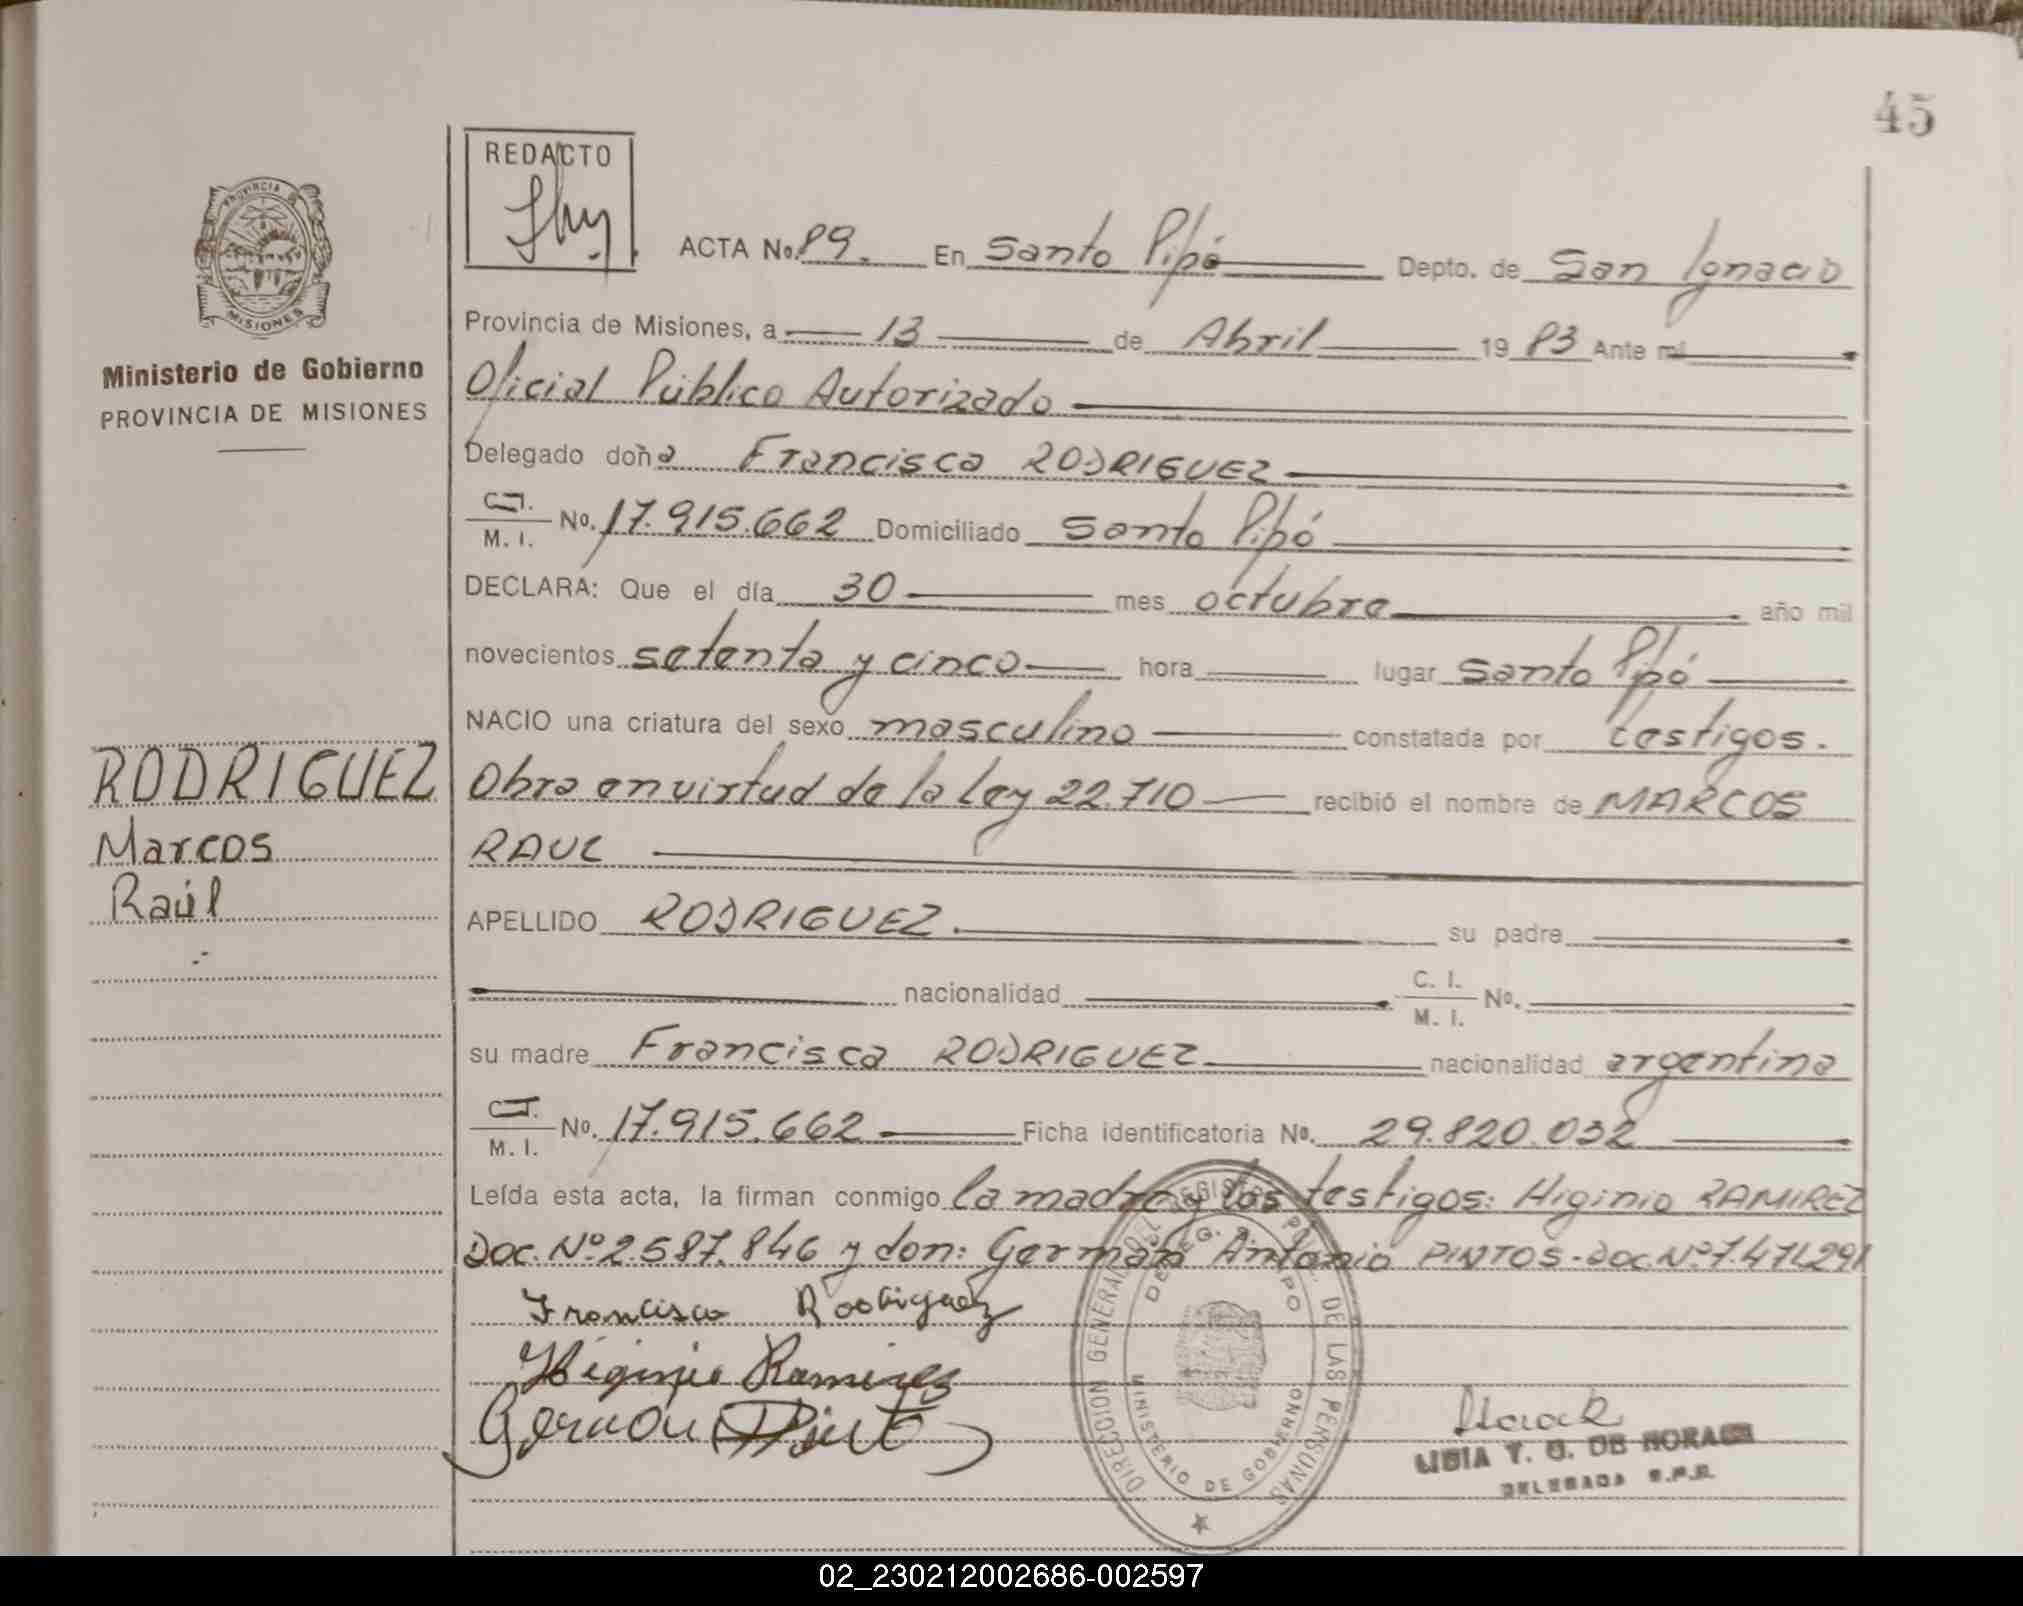 45
REDACTO
PROVINCIA
MISIONES
Ministerio de Gobierno
PROVINCIA DE MISIONES
ACTA No. 89. En Santo Pipó Depto. de San Ignacio
Provincia de Misiones, a 13 de Abril 1983 Ante mi
Oficial Público Autorizado
Delegado doña Francisca RODRIGUEZ
C.I. M. I. No. 17.915.662 Domiciliado Santo Pipó
DECLARA: Que el día 30 mes octubre año mil
novecientos setenta y cinco hora lugar Santo Pipó
NACIO una criatura del sexo masculino constatada por testigos.
Obra en virtud de la Ley 22.710 recibió el nombre de MARCOS
RAUL
RODRIGUEZ
Marcos
Raúl
APELLIDO RODRIGUEZ. su padre
nacionalidad C. I. M. I. No.
su madre Francisca RODRIGUEZ nacionalidad argentina
C.I. M. I. No. 17.915.662 Ficha identificatoria No. 29.820.032
Leída esta acta, la firman conmigo la madre y los testigos: Higinio RAMIREZ
Doc. Nº 2.587.846 y don: Germán Antonio PINTOS - Doc. Nº 7.471.291
Francisca Rodriguez
Higinio Ramirez
German Pinto
DIRECCION GENERAL DEL REGISTRO DE LAS PERSONAS
MINISTERIO DE GOBIERNO
DELEGADA
02_230212002686-002597